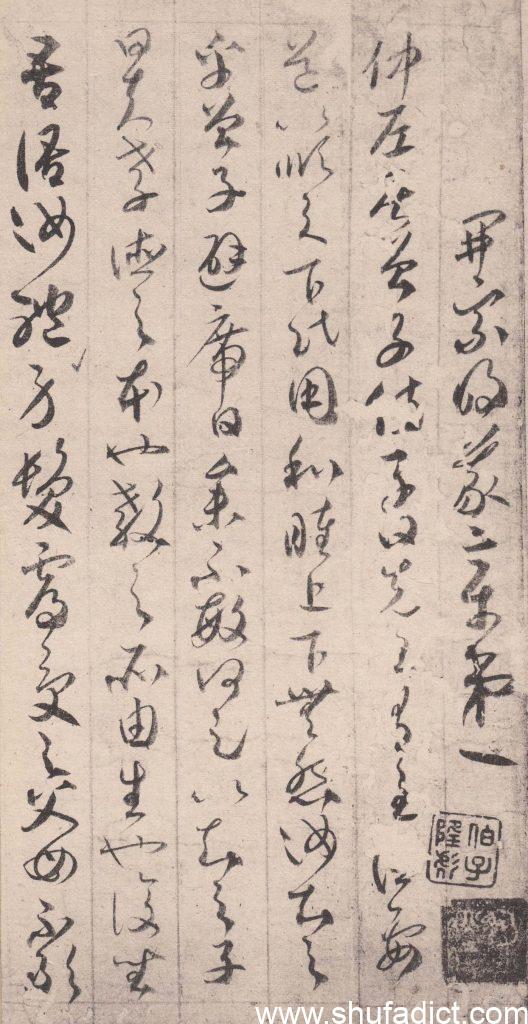 開宗明義章第一
仲尼居曾子侍子曰先王有至德要
道以順天下民用和睦上下無怨汝知之
乎曾子避席曰參不敏何足以知之子
曰夫孝德之本也教之所由生也復坐
吾語汝體身髮膚受之父母不敢
www.shufadict.com